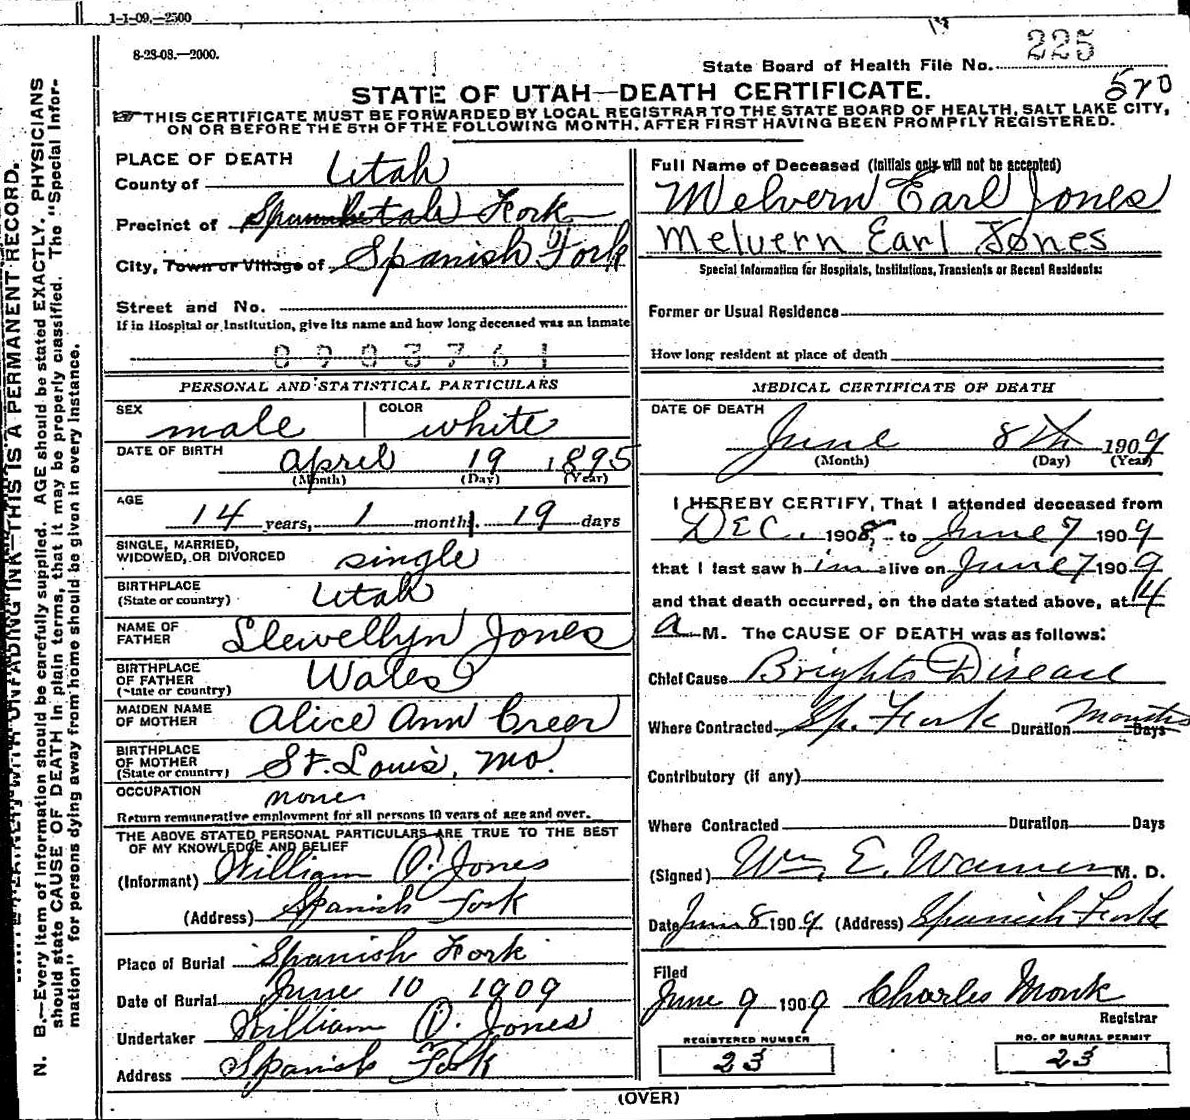 1-1-09.—2500
8-28-08.—2000.
State Board of Health File No. 225
STATE OF UTAH—DEATH CERTIFICATE. 520
THIS CERTIFICATE MUST BE FORWARDED BY LOCAL REGISTRAR TO THE STATE BOARD OF HEALTH, SALT LAKE CITY,
ON OR BEFORE THE 5TH OF THE FOLLOWING MONTH, AFTER FIRST HAVING BEEN PROMPTLY REGISTERED.
N. B.—Every item of information should be carefully supplied. AGE should be stated EXACTLY. PHYSICIANS
should state CAUSE OF DEATH in plain terms, that it may be properly classified. The "Special Infor-
mation" for persons dying away from home should be given in every instance.
WITH UNFADING INK—THIS IS A PERMANENT RECORD.
PLACE OF DEATH
County of Utah
Precinct of Fork
City, Town or Village of Spanish Fork
Street and No.
If in Hospital or Institution, give its name and how long deceased was an inmate
0903761
PERSONAL AND STATISTICAL PARTICULARS
SEX male COLOR white
DATE OF BIRTH April 19 1895
(Month) (Day) (Year)
AGE 14 years, 1 month. 19 days
SINGLE, MARRIED,
WIDOWED, OR DIVORCED single
BIRTHPLACE
(State or country) Utah
NAME OF
FATHER Llewellyn Jones
BIRTHPLACE
OF FATHER
(State or country) Wales
MAIDEN NAME
OF MOTHER Alice Ann Creer
BIRTHPLACE
OF MOTHER
(State or country) St. Louis, Mo.
OCCUPATION none
Return remunerative employment for all persons 10 years of age and over.
THE ABOVE STATED PERSONAL PARTICULARS ARE TRUE TO THE BEST
OF MY KNOWLEDGE AND BELIEF
(Informant) William O. Jones
(Address) Spanish Fork
Place of Burial Spanish Fork
Date of Burial June 10 1909
Undertaker William O. Jones
Address Spanish Fork
Full Name of Deceased (Initials only will not be accepted)
Melvern Earl Jones
Melvern Earl Jones
Special Information for Hospitals, Institutions, Transients or Recent Residents:
Former or Usual Residence
How long resident at place of death
MEDICAL CERTIFICATE OF DEATH
DATE OF DEATH
June 8th 1909
(Month) (Day) (Year)
I HEREBY CERTIFY, That I attended deceased from
DEC. 1908, to June 7 1909
that I last saw him alive on June 7 1909
and that death occurred, on the date stated above, at 4
a M. The CAUSE OF DEATH was as follows:
Chief Cause Brights Disease
Where Contracted Sp. Fork Duration Months Days
Contributory (if any)
Where Contracted Duration Days
(Signed) Wm. E. Warner M. D.
Date June 8 1909 (Address) Spanish Fork
Filed
June 9 1909 Charles Monk
Registrar
REGISTERED NUMBER
23
NO. OF BURIAL PERMIT
23
(OVER)